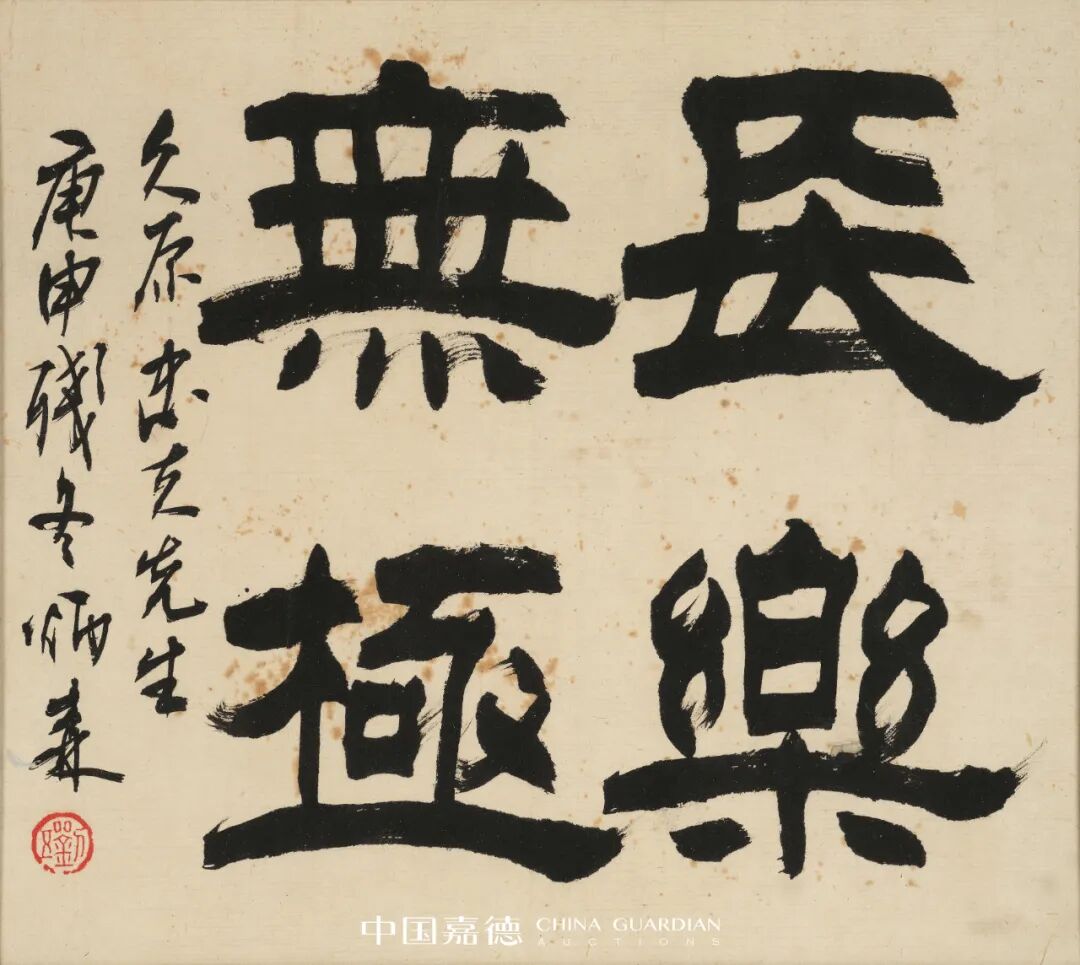 長樂
無極
久原先生
庚申殘冬炳森
劉
中国嘉德 CHINA GUARDIAN
AUCTIONS